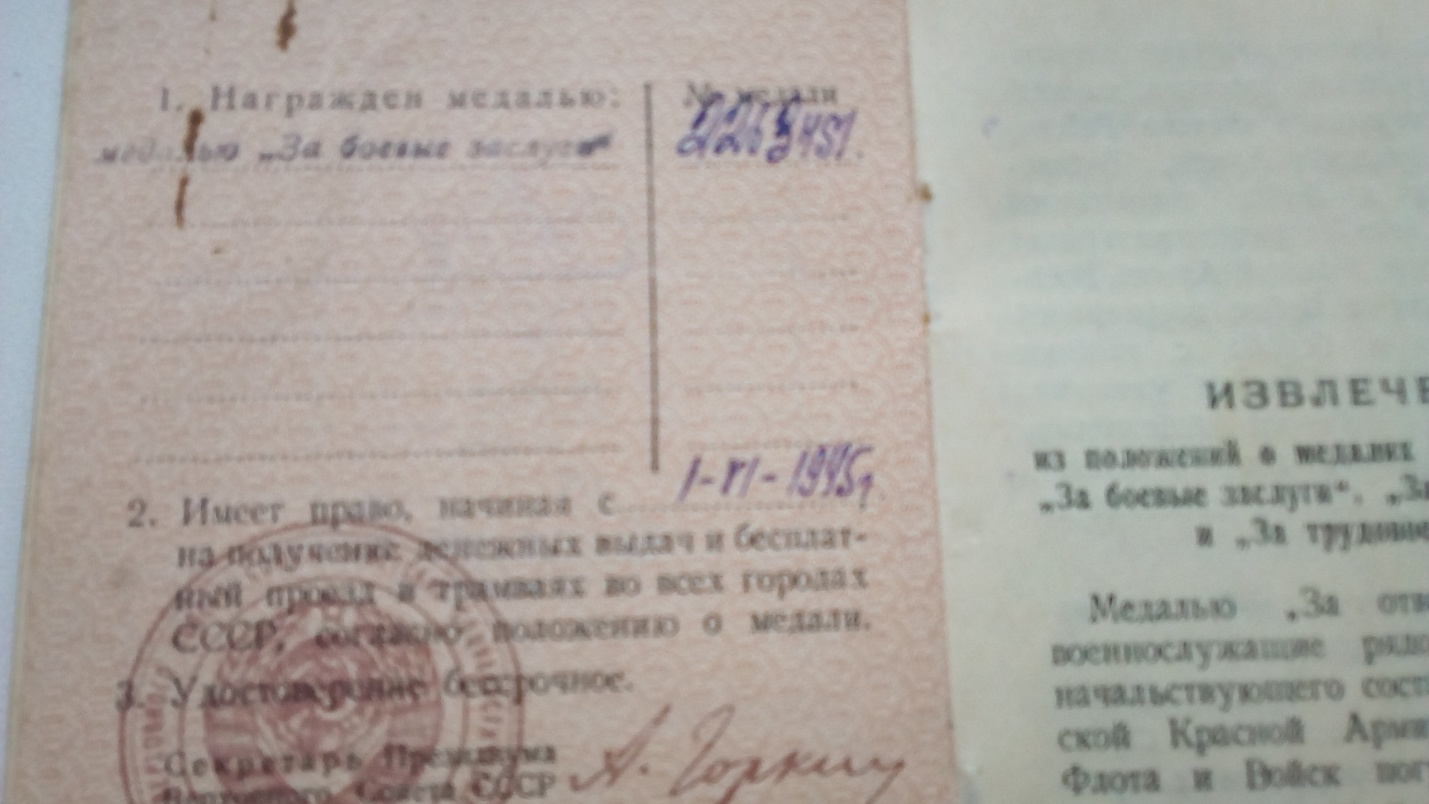 1. Награжден медалью:
№ медали
медалью „За боевые заслуги“
1-VI-1945г.
2. Имеет право, начиная с
на получение денежных выдач и бесплат-
ный проезд в трамваях во всех городах
СССР, согласно положению о медали.
3. Удостоверение бессрочное.
Секретарь Президиума
Верховного Совета СССР
А. Горкин
ИЗВЛЕЧЕ
из положений о медалях
„За боевые заслуги“, „За
и „За трудовое
Медалью „За отв
военнослужащие рядо
начальствующего сост
ской Красной Арми
Флота и Войск пог